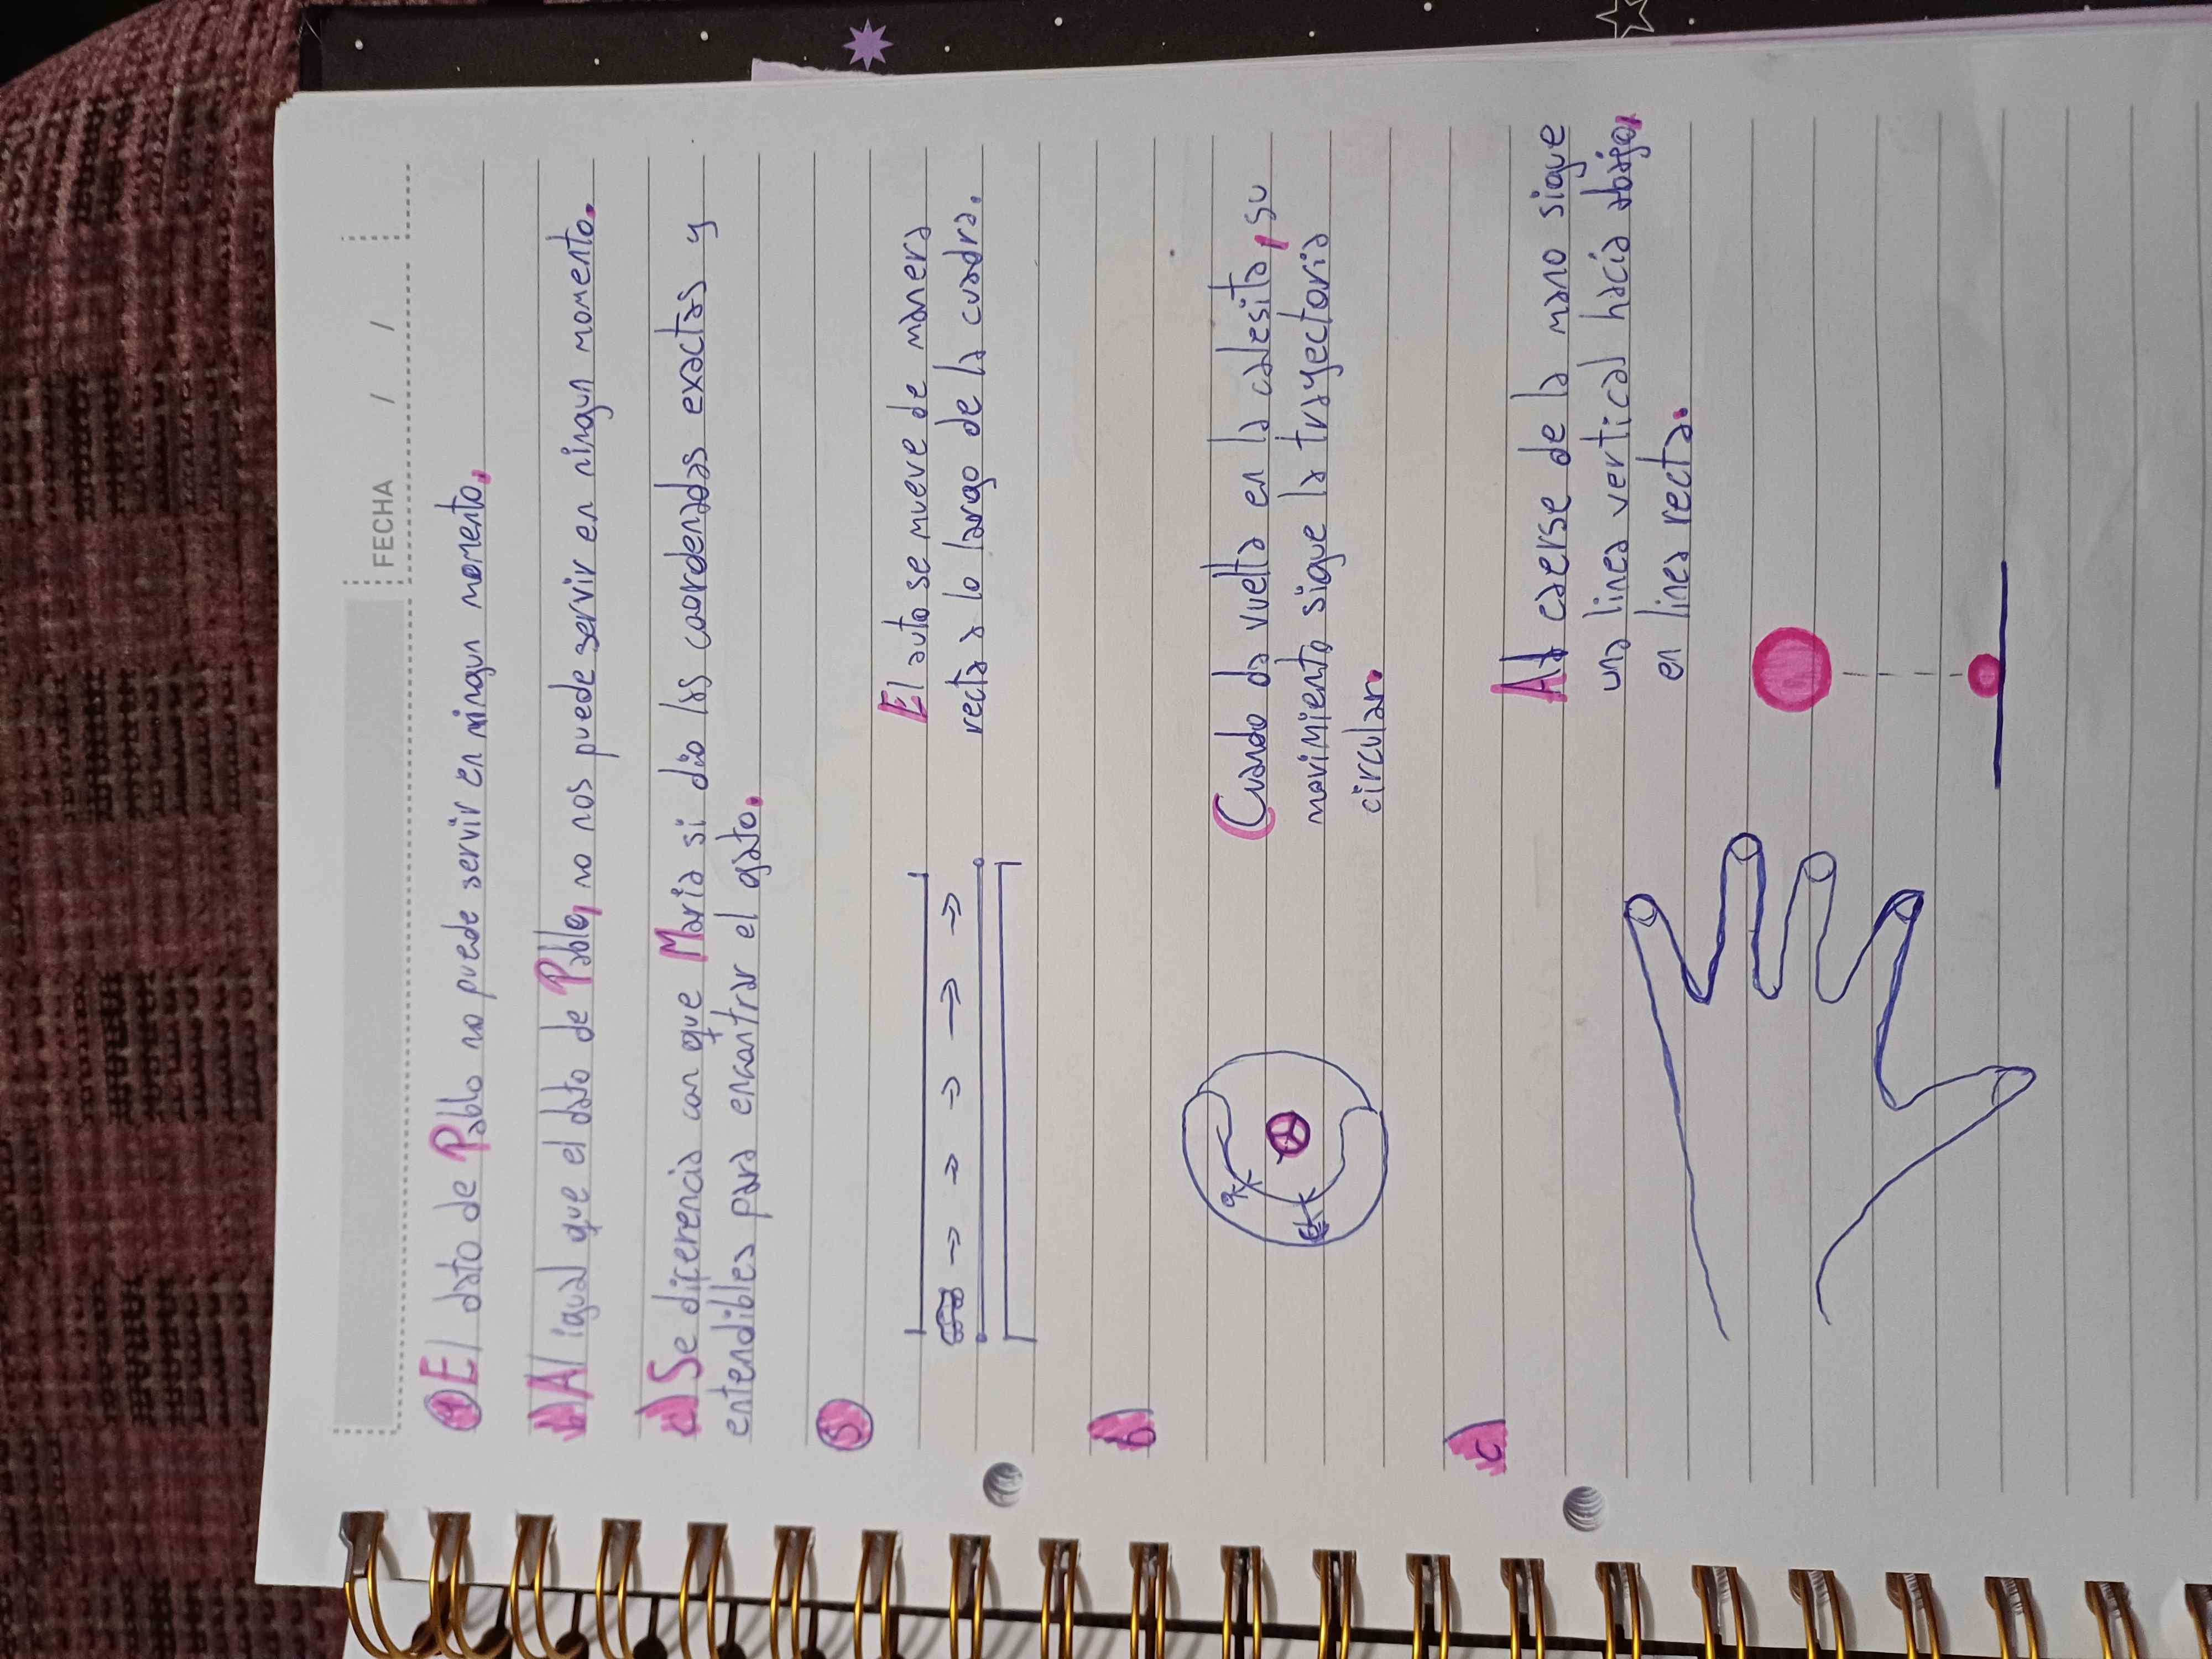 FECHA / /
4) El dato de Pablo no puede servir en ningun momento.
b) Al igual que el dato de Pablo, no nos puede servir en ningun momento.
c) Se diferencia con que Maria si dio las coordenadas exactas y
entendibles para encontrar el gato.
5)
El auto se mueve de manera
recta a lo largo de la cuadra.
b
Cuando da vuelta en la calesita, su
movimiento sigue la trayectoria
circular.
c
Al caerse de la mano sigue
una linea vertical hacia abajo,
en linea recta.